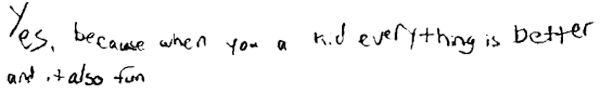 Yes, because when you a kid everything is better
and it also fun